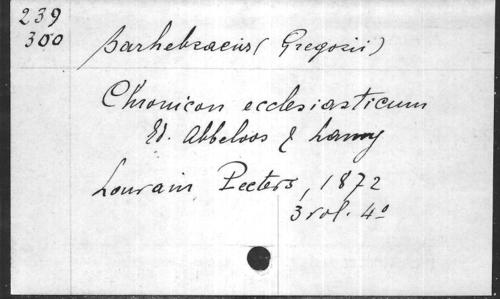 239
300
Barhebraeus (Gregorii)
Chronicon ecclesiasticum
Ed. Abbeloos & Lamy
Louvain Peeters, 1872
3 vol. 4°